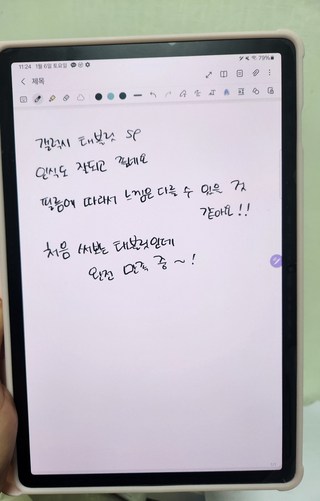 11:24 1월 6일 토요일
79%
제목
갤럭시 태블릿 SP
인식도 잘되고 편해요
필름에 따라서 느낌은 다를 수 있을 것
같아요!!
처음 써보는 태블릿인데
완전 만족 중~!